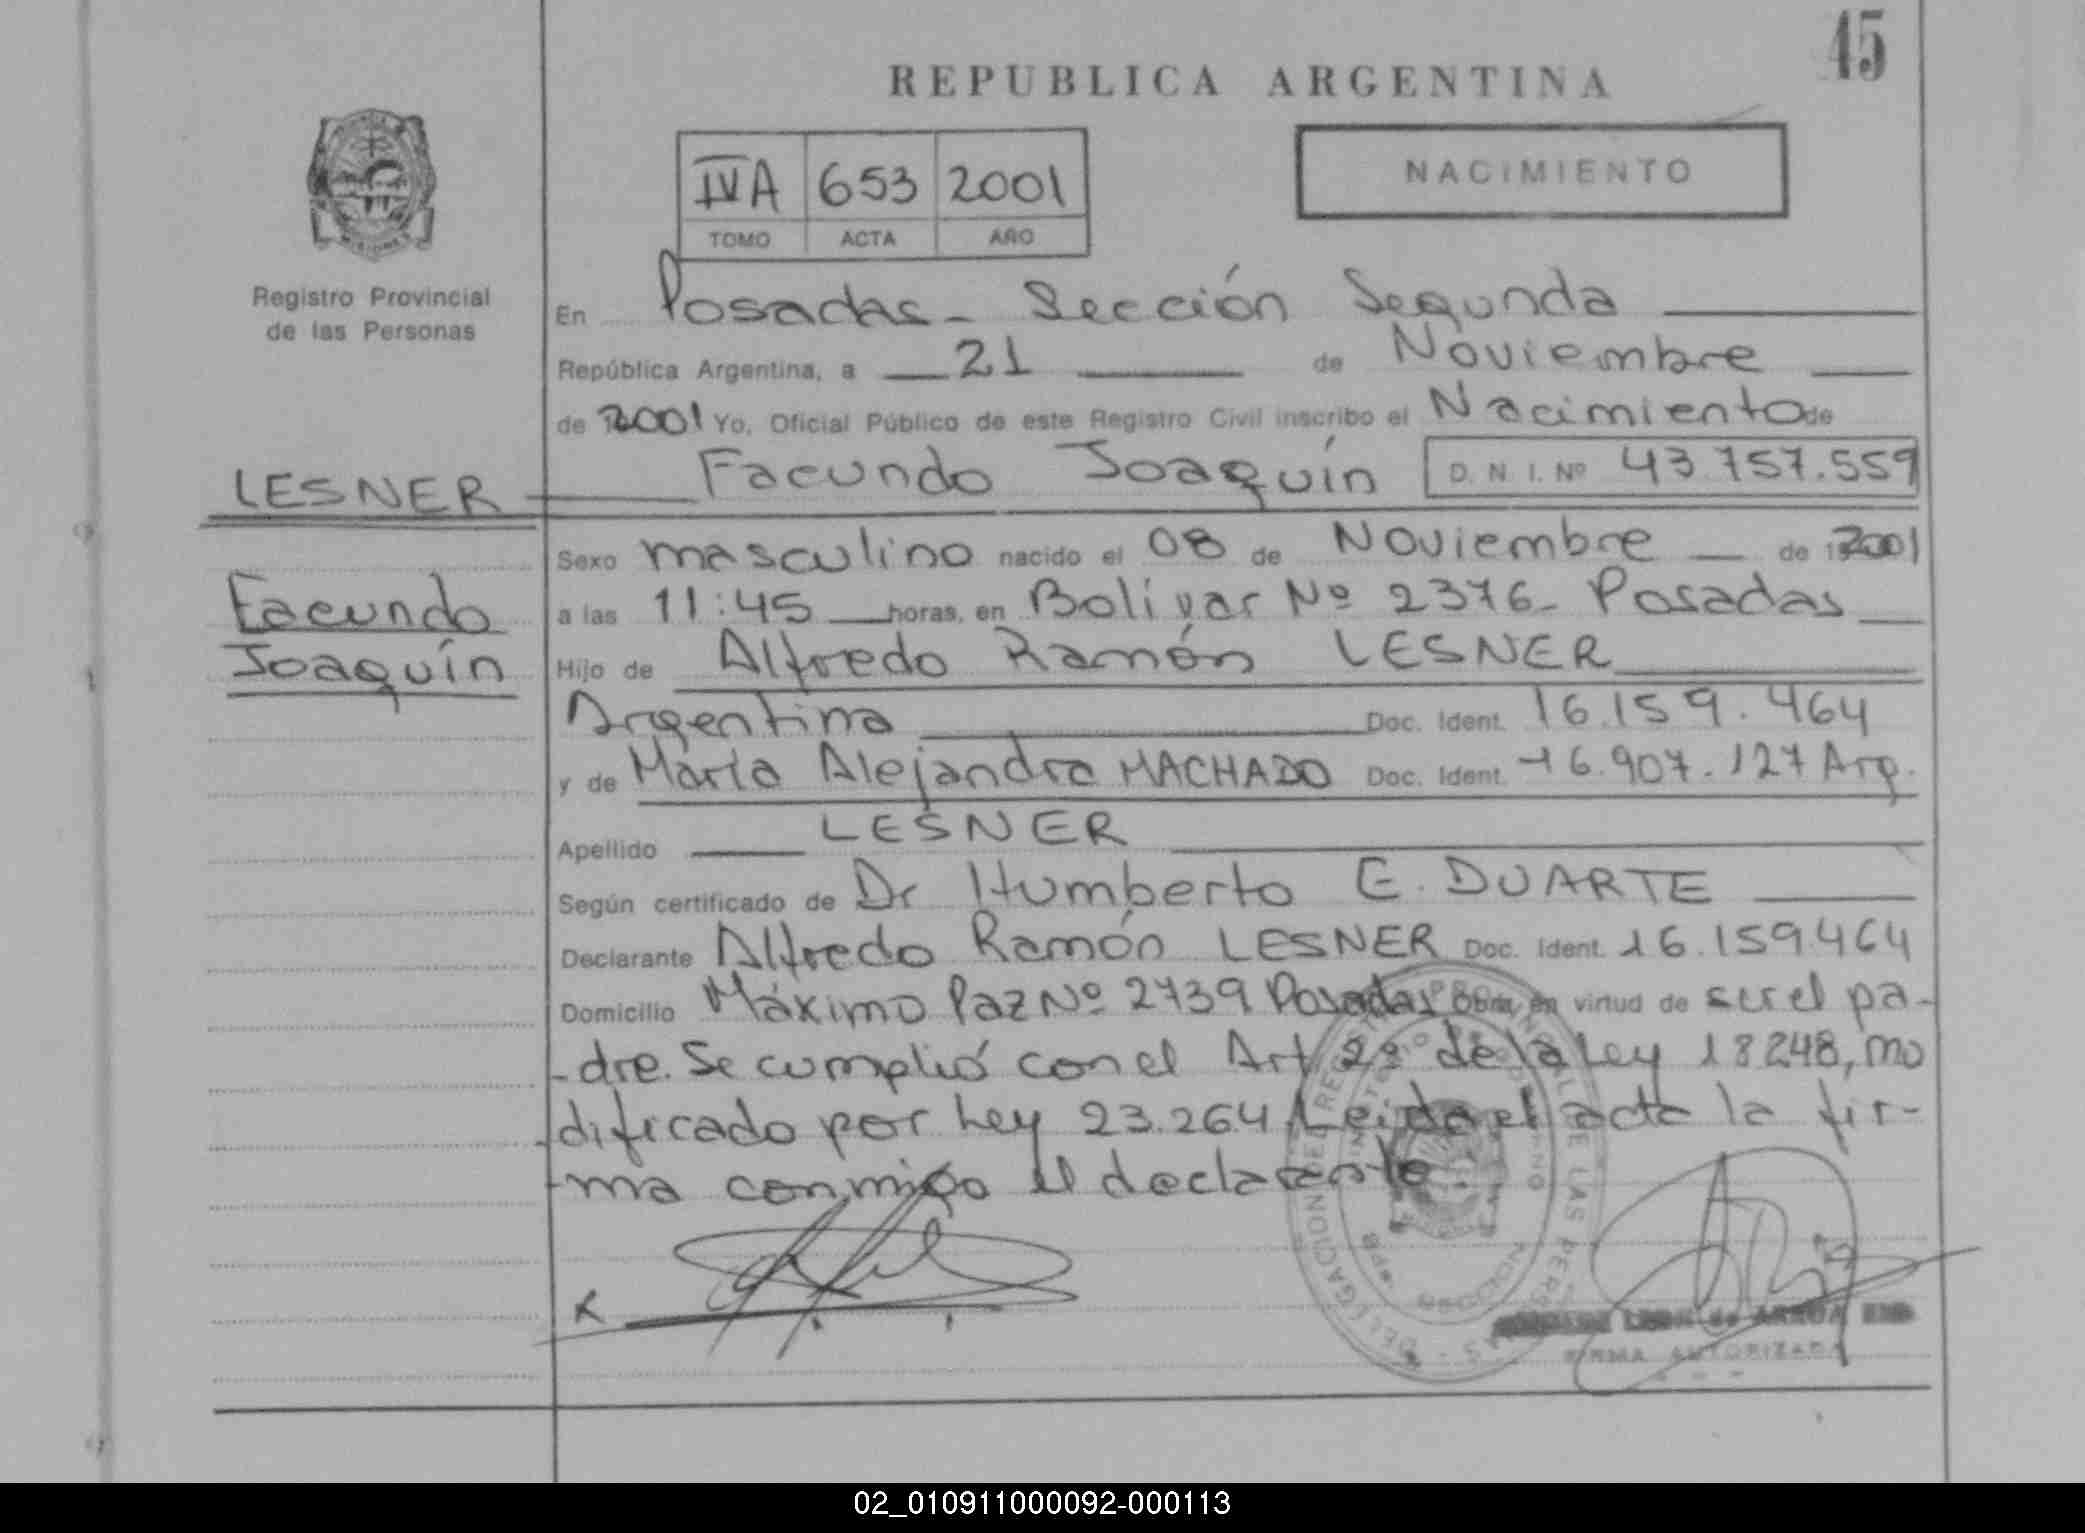 45
REPUBLICA ARGENTINA
IVA 653 2001
TOMO ACTA AÑO
NACIMIENTO
MISIONES
Registro Provincial
de las Personas
En Posadas - Sección Segunda
República Argentina, a 21 de Noviembre
de 2001 Yo, Oficial Público de este Registro Civil inscribo el Nacimiento de
LESNER Facundo Joaquín D. N. I. Nº 43.757.559
Sexo masculino nacido el 08 de Noviembre de 2001
Facundo
a las 11:45 horas, en Bolivar Nº 2376 - Posadas
Joaquín
Hijo de Alfredo Ramón LESNER
Argentina Doc. Ident. 16.159.464
y de María Alejandra MACHADO Doc. Ident. 16.907.127 Arg.
Apellido LESNER
Según certificado de Dr Humberto E. DUARTE
Declarante Alfredo Ramón LESNER Doc. Ident. 16.159.464
Domicilio Máximo Paz Nº 2739 Posadas Obra en virtud de ser el pa-
-dre. Se cumplió con el Art 2º de la Ley 18248, mo
dificado por Ley 23.264. Leida el acta la fir-
-ma conmigo el declarante
DELEGACION DEL REGISTRO PROVINCIAL DE LAS PERSONAS
LEON de ARRUA
FIRMA AUTORIZADA
02_010911000092-000113